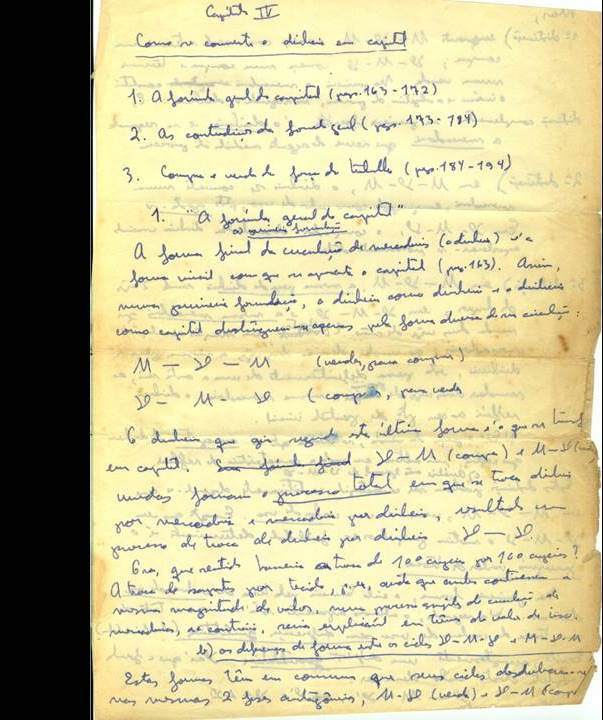 Capítulo IV
Como se converte o dinheiro em capital
1. A fórmula geral do capital (pags. 163-172)
2. As contradições da fórmula geral (pags. 173-184)
3. Compra e venda de força de trabalho (pags. 184-194)
1. "A fórmula geral do capital"
a) primeira formulação
A forma final da circulação de mercadorias (o dinheiro) é a
forma inicial com que se apresenta o capital (pag. 163). Assim,
numa primeira formulação, o dinheiro como dinheiro e o dinheiro
como capital distinguem-se apenas pela forma diversa de sua circulação:
M — D — M (vender, para comprar)
D — M — D (comprar, para vender
O dinheiro que gira segundo esta última forma é o que se transf
em capital. D-M (compra) e M-D
unidas formam o processo total em que se troca dinheiro
por mercadoria e mercadoria por dinheiro, resultado um
processo de troca de dinheiro por dinheiro D — D.
Ora, que sentido haveria na troca de 100 cruzeiros por 100 cruzeiros?
A troca de sapatos por tecido, p. ex., ainda que ambos contivessem a
mesma magnitude de valor, num processo simples de circulação de
mercadorias, ao contrário, seria explicável em termos de valor de uso.
b) as diferenças de forma entre os ciclos D-M-D e M-D-M
Estas formas têm em comum que seus ciclos desdobram-se
nas mesmas 2 fases antagônicas, M-D (venda) e D-M